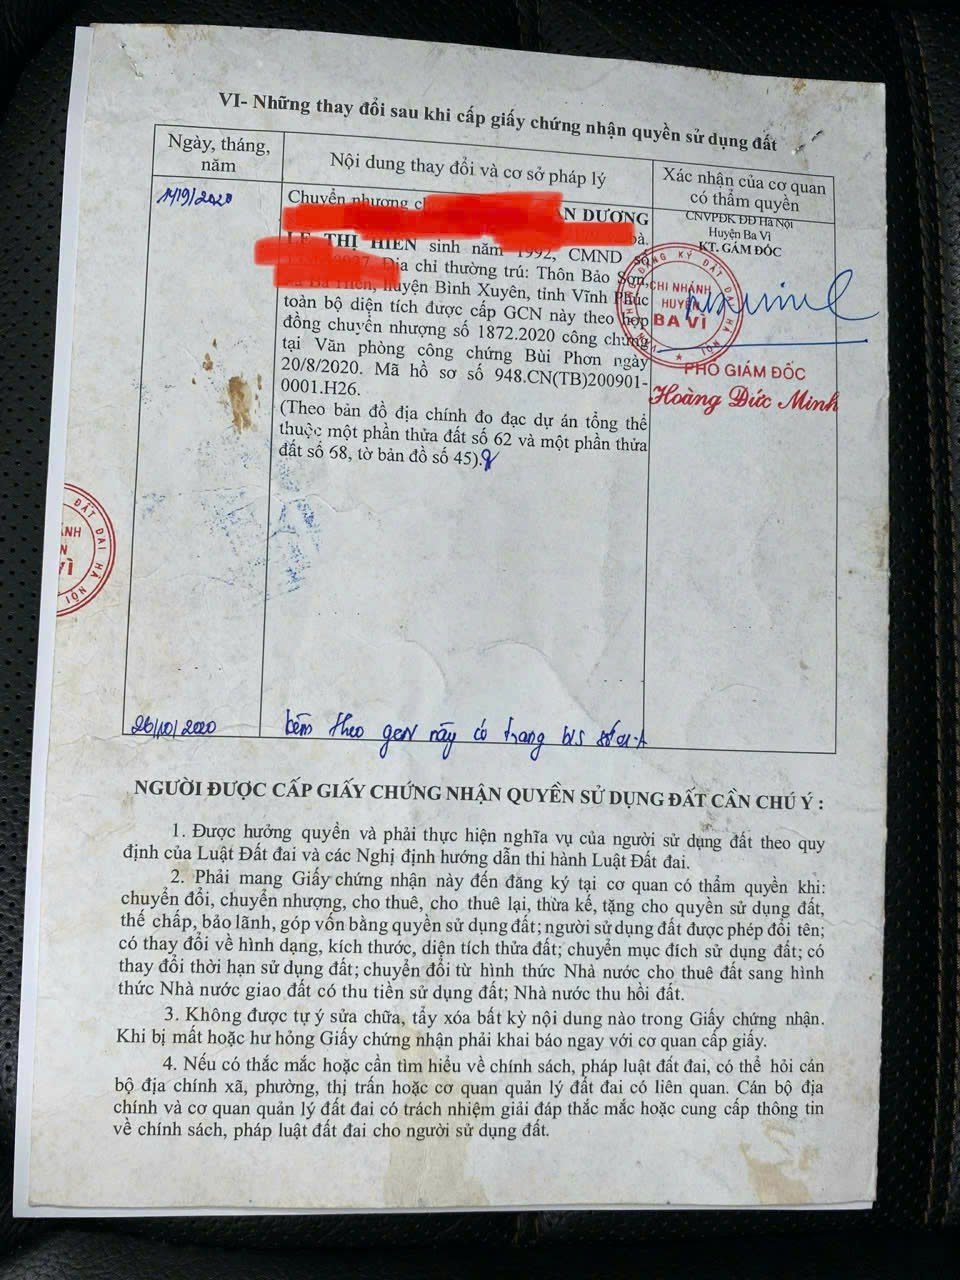 VI- Những thay đổi sau khi cấp giấy chứng nhận quyền sử dụng đất
Ngày, tháng,
năm
Nội dung thay đổi và cơ sở pháp lý
Xác nhận của cơ quan
có thẩm quyền
14/9/2020
Chuyển nhượng
DƯƠNG
bà.
LÊ THỊ HIỀN sinh năm 1992, CMND số
Địa chỉ thường trú: Thôn Bảo Sơn,
huyện Bình Xuyên, tỉnh Vĩnh Phúc
toàn bộ diện tích được cấp GCN này theo hợp
đồng chuyển nhượng số 1872.2020 công chứng
tại Văn phòng công chứng Bùi Phơn ngày
20/8/2020. Mã hồ sơ số 948.CN(TB)200901-
0001.H26.
(Theo bản đồ địa chính đo đạc dự án tổng thể
thuộc một phần thửa đất số 62 và một phần thửa
đất số 68, tờ bản đồ số 45).
CNVPĐK ĐĐ Hà Nội
Huyện Ba Vì
KT. GÁM ĐỐC
CHI NHÁNH
HUYỆN
BA VÌ
PHÓ GIÁM ĐỐC
Hoàng Đức Minh
ĐẤT ĐAI HÀ NỘI
26/10/2020
kèm theo GCN này có trang BS số 01-A
NGƯỜI ĐƯỢC CẤP GIẤY CHỨNG NHẬN QUYỀN SỬ DỤNG ĐẤT CẦN CHÚ Ý :
1. Được hưởng quyền và phải thực hiện nghĩa vụ của người sử dụng đất theo quy
định của Luật Đất đai và các Nghị định hướng dẫn thi hành Luật Đất đai.
2. Phải mang Giấy chứng nhận này đến đăng ký tại cơ quan có thẩm quyền khi:
chuyển đổi, chuyển nhượng, cho thuê, cho thuê lại, thừa kế, tặng cho quyền sử dụng đất,
thế chấp, bảo lãnh, góp vốn bằng quyền sử dụng đất; người sử dụng đất được phép đổi tên;
có thay đổi về hình dạng, kích thước, diện tích thửa đất; chuyển mục đích sử dụng đất; có
thay đổi thời hạn sử dụng đất; chuyển đổi từ hình thức Nhà nước cho thuê đất sang hình
thức Nhà nước giao đất có thu tiền sử dụng đất; Nhà nước thu hồi đất.
3. Không được tự ý sửa chữa, tẩy xóa bất kỳ nội dung nào trong Giấy chứng nhận.
Khi bị mất hoặc hư hỏng Giấy chứng nhận phải khai báo ngay với cơ quan cấp giấy.
4. Nếu có thắc mắc hoặc cần tìm hiểu về chính sách, pháp luật đất đai, có thể hỏi cán
bộ địa chính xã, phường, thị trấn hoặc cơ quan quản lý đất đai có liên quan. Cán bộ địa
chính và cơ quan quản lý đất đai có trách nhiệm giải đáp thắc mắc hoặc cung cấp thông tin
về chính sách, pháp luật đất đai cho người sử dụng đất.